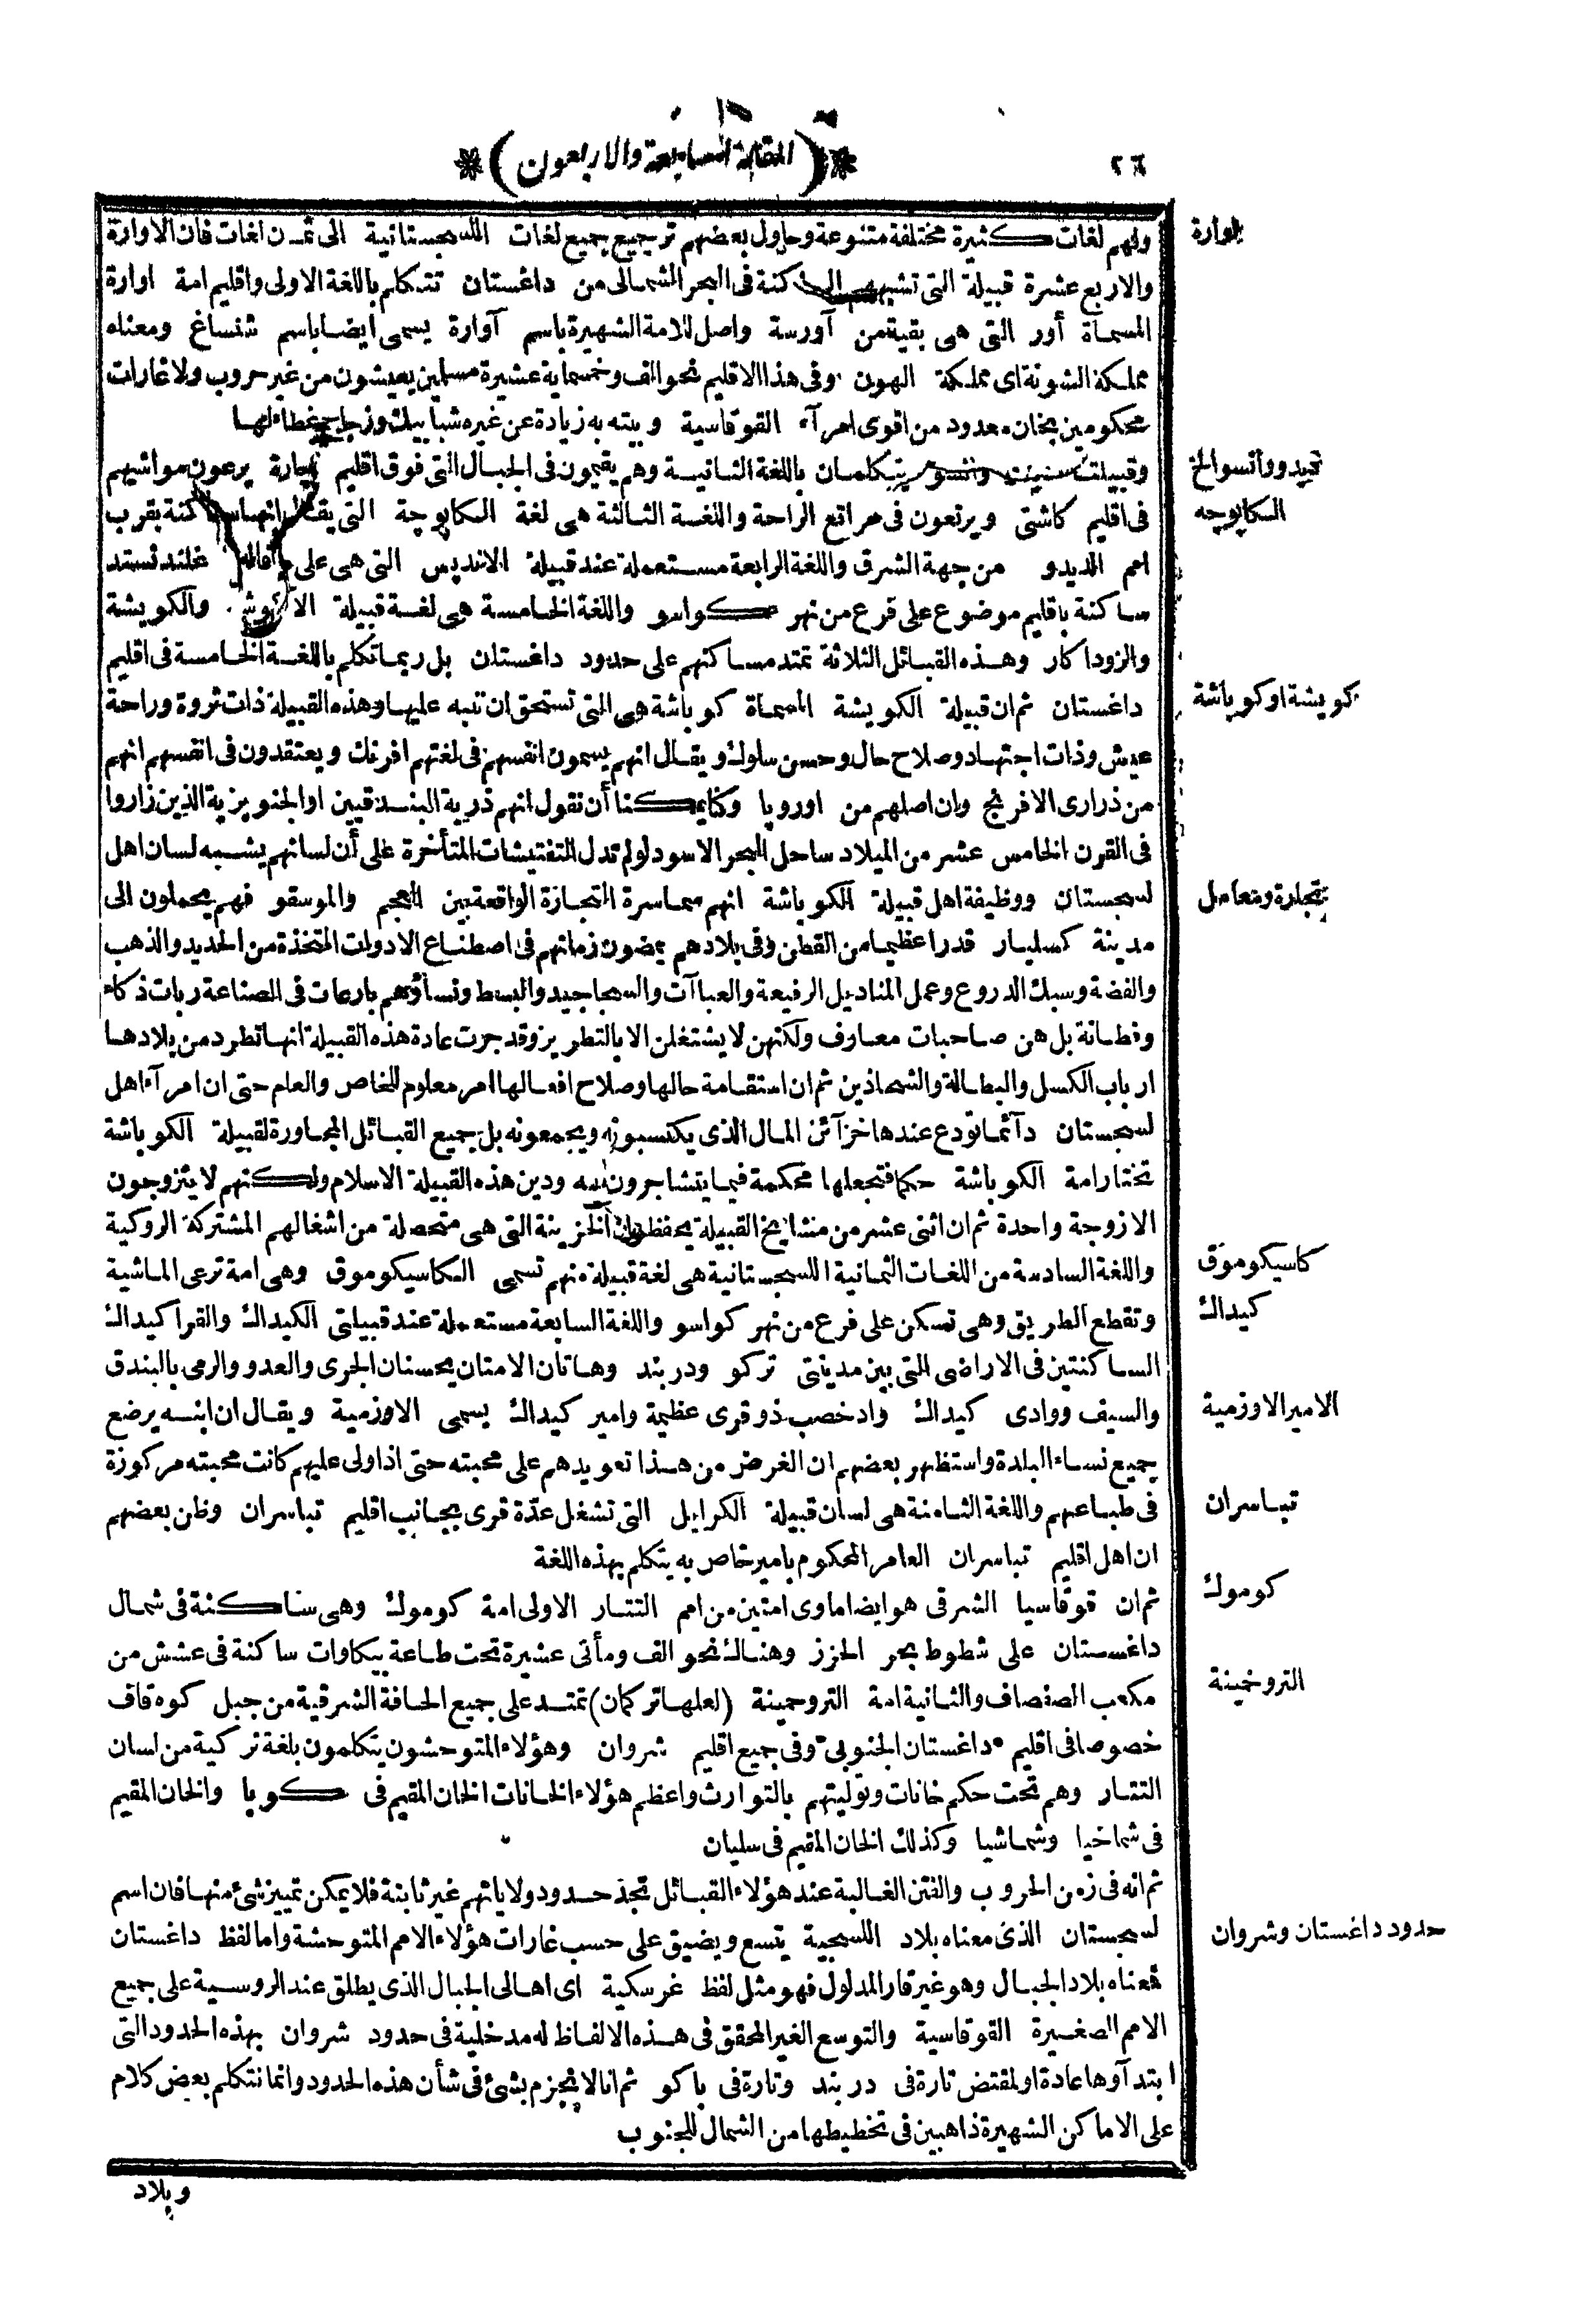 ٢٦
(المقالة السابعة والاربعون)
ولهم لغات كثيرة مختلفة متنوعة وحاول بعضهم ترجيع جميع لغات اللسجستانية الى ثمن لغات فان الاوارة
اوارة
والاربع عشرة قبيلة التى تشبهها الساكنة فى البحر الشمالى من داغستان تتكلم باللغة الاولى واقليم امة اوارة
المسماة أور التى هى بقية من آورسة واصل للامة الشهيرة باسم آوارة يسمى ايضا باسم شنساغ ومعناه
مملكة الشونة اى مملكة الهون وفى هذا الاقليم نحو الف وخمسماية عشيرة مسلمين يعيشون من غير حروب ولا غارات
محكومين بخان معدود من اقوى امرآء القوقاسية وبيته به زيادة عن غيره شبابيك وزجاج غطاء لها
وقبيلتا يتكلمان باللغة الثانية وهم يقيمون فى الجبال التى فوق اقليم اوارة يرعون مواشيهم
فى اقليم كاشتى ويرتعون فى مراتع الراحة واللغة الثالثة هى لغة الكابوچة التى يقال انها ساكنة بقرب
الكابوچه
امم الديدو من جهة الشرق واللغة الرابعة مستعملة عند قبيلة الانديس التى هى على
ساكنة باقليم موضوع على فرع من نهر كواسو واللغة الخامسة هى لغة قبيلة والكويشة
والزوداكار وهذه القبائل الثلاثة تمتد مساكنهم على حدود داغستان بل ربما تكلم باللغة الخامسة فى اقليم
داغستان ثم ان قبيلة الكويشة المسماة كوباشة هى التى تستحق ان ننبه عليها وهذه القبيلة ذات ثروة وراحة
كويشة اوكوباشة
عيش وذات اجتهاد وصلاح حال وحسن سلوك ويقال انهم يسمون انفسهم فى لغتهم افرنك ويعتقدون فى انفسهم انهم
من ذرارى الافرنج وان اصلهم من اوروپا وكنا يمكننا أن نقول انهم ذرية البندقيين اوالجنويزية الذين زاروا
فى القرن الخامس عشر من الميلاد ساحل البحر الاسود لولم تدل التفتيشات المتأخرة على أن لسانهم يشبه لسان اهل
لسجستان ووظيفة اهل قبيلة الكوباشة انهم سماسرة التجازة الواقعة بين العجم والموسقو فهم يحملون الى
مدينة كسليار قدرا عظيما من القطن وفى بلادهم يمضون زمانهم فى اصطناع الادوات المتخذة من الحديد والذهب
والفضة وسبك الدروع وعمل المناديل الرفيعة والعباآت والسجاجيد والبسط ونساؤهم بارعات فى الصناعة ربات ذكاء
وفطانة بل هن صاحبات معارف ولكنهن لا يشتغلن الا بالتطريز وقد جرت عادة هذه القبيلة انها تطرد من بلادها
ارباب الكسل والبطالة والشحاذين ثم ان استقامة حالها وصلاح افعالها امر معلوم للخاص والعام حتى ان امرآء اهل
لسجستان دآئما تودع عندها خزآئن المال الذى يكتسبونه ويجمعونه بل جميع القبائل المجاورة لقبيلة الكوباشة
تختار امة الكوباشة حكما فتجعلها محكمة فيما يتشاجرون فيه ودين هذه القبيلة الاسلام ولكنهم لا يتزوجون
الا زوجة واحدة ثم ان اثنى عشر من مشايخ القبيلة يحفظون الخزينة التى هى متحصلة من اشغالهم المشتركة الروكية
واللغة السادسة من اللغات الثمانية اللسجستانية هى لغة قبيلة منهم تسمى الكاسيكوموق وهى امة ترعى الماشية
كاسيكوموق
وتقطع الطريق وهى تسكن على فرع من نهر كواسو واللغة السابعة مستعملة عند قبيلتى الكيداك والقراكيداك
كيداك
الساكنتين فى الاراضى التى بين مدينتى تركو ودربند وهاتان الامتان يحسنان الجرى والعدو والرمى بالبندق
والسيف ووادى كيداك واد خصب ذو قرى عظيمة وامير كيداك يسمى الاوزمية ويقال ان ابنه يرضع
الامير الاوزمية
جميع نساء البلدة واستظهر بعضهم ان الغرض من هذا تعويدهم على محبته حتى اذا ولى عليهم كانت محبته مركوزة
فى طباعهم واللغة الثامنة هى لسان قبيلة الكرايل التى تشغل عدّة قرى بجانب اقليم تباسران وظن بعضهم
تباسران
ان اهل اقليم تباسران العامر المحكوم بامير خاص به يتكلم بهذه اللغة
ثم ان قوقاسيا الشرقى هو ايضا ماوى امتين من امم التتار الاولى امة كوموك وهى ساكنة فى شمال
كوموك
داغستان على شطوط بحر الخزز وهناك نحو الف ومأتى عشيرة تحت طاعة بيكاوات ساكنة فى عشش من
مكعب الصفصاف والثانية امة التروخمينة (لعلها تركمان) تمتد على جميع الحافة الشرقية من جبل كوه قاف
التروخمينة
خصوصا فى اقليم داغستان الجنوبى وفى جميع اقليم شروان وهؤلاء المتوحشون يتكلمون بلغة تركية من لسان
التتار وهم تحت حكم خانات وتوليتهم بالتوارث واعظم هؤلاء الخانات الخان المقيم فى كوبا والخان المقيم
فى شماخيا وشماشيا وكذلك الخان المقيم فى سليان
ثم انه فى زمن الحروب والفتن الغالبة عند هؤلاء القبائل تجد حدود ولاياتهم غير ثابتة فلا يمكن تمييز شئ منها فان اسم
لسجستان الذى معناه بلاد اللسجية يتسع ويضيق على حسب غارات هؤلاء الامم المتوحشة واما لفظ داغستان
حدود داغستان وشروان
فمعناه بلاد الجبال وهو غير قار المدلول فهو مثل لفظ غرسكية اى اهالى الجبال الذى يطلق عند الروسية على جميع
الامم الصغيرة القوقاسية والتوسع الغير المحقق فى هذه الالفاظ له مدخلية فى حدود شروان بهذه الحدود التى
ابتدآوها عادة اولمقتض تارة فى دربند وتارة فى باكو ثم انا لا نجزم بشئ فى شأن هذه الحدود وانما نتكلم بعض كلام
على الاماكن الشهيرة ذاهبين فى تخطيطها من الشمال للجنوب
وبلاد